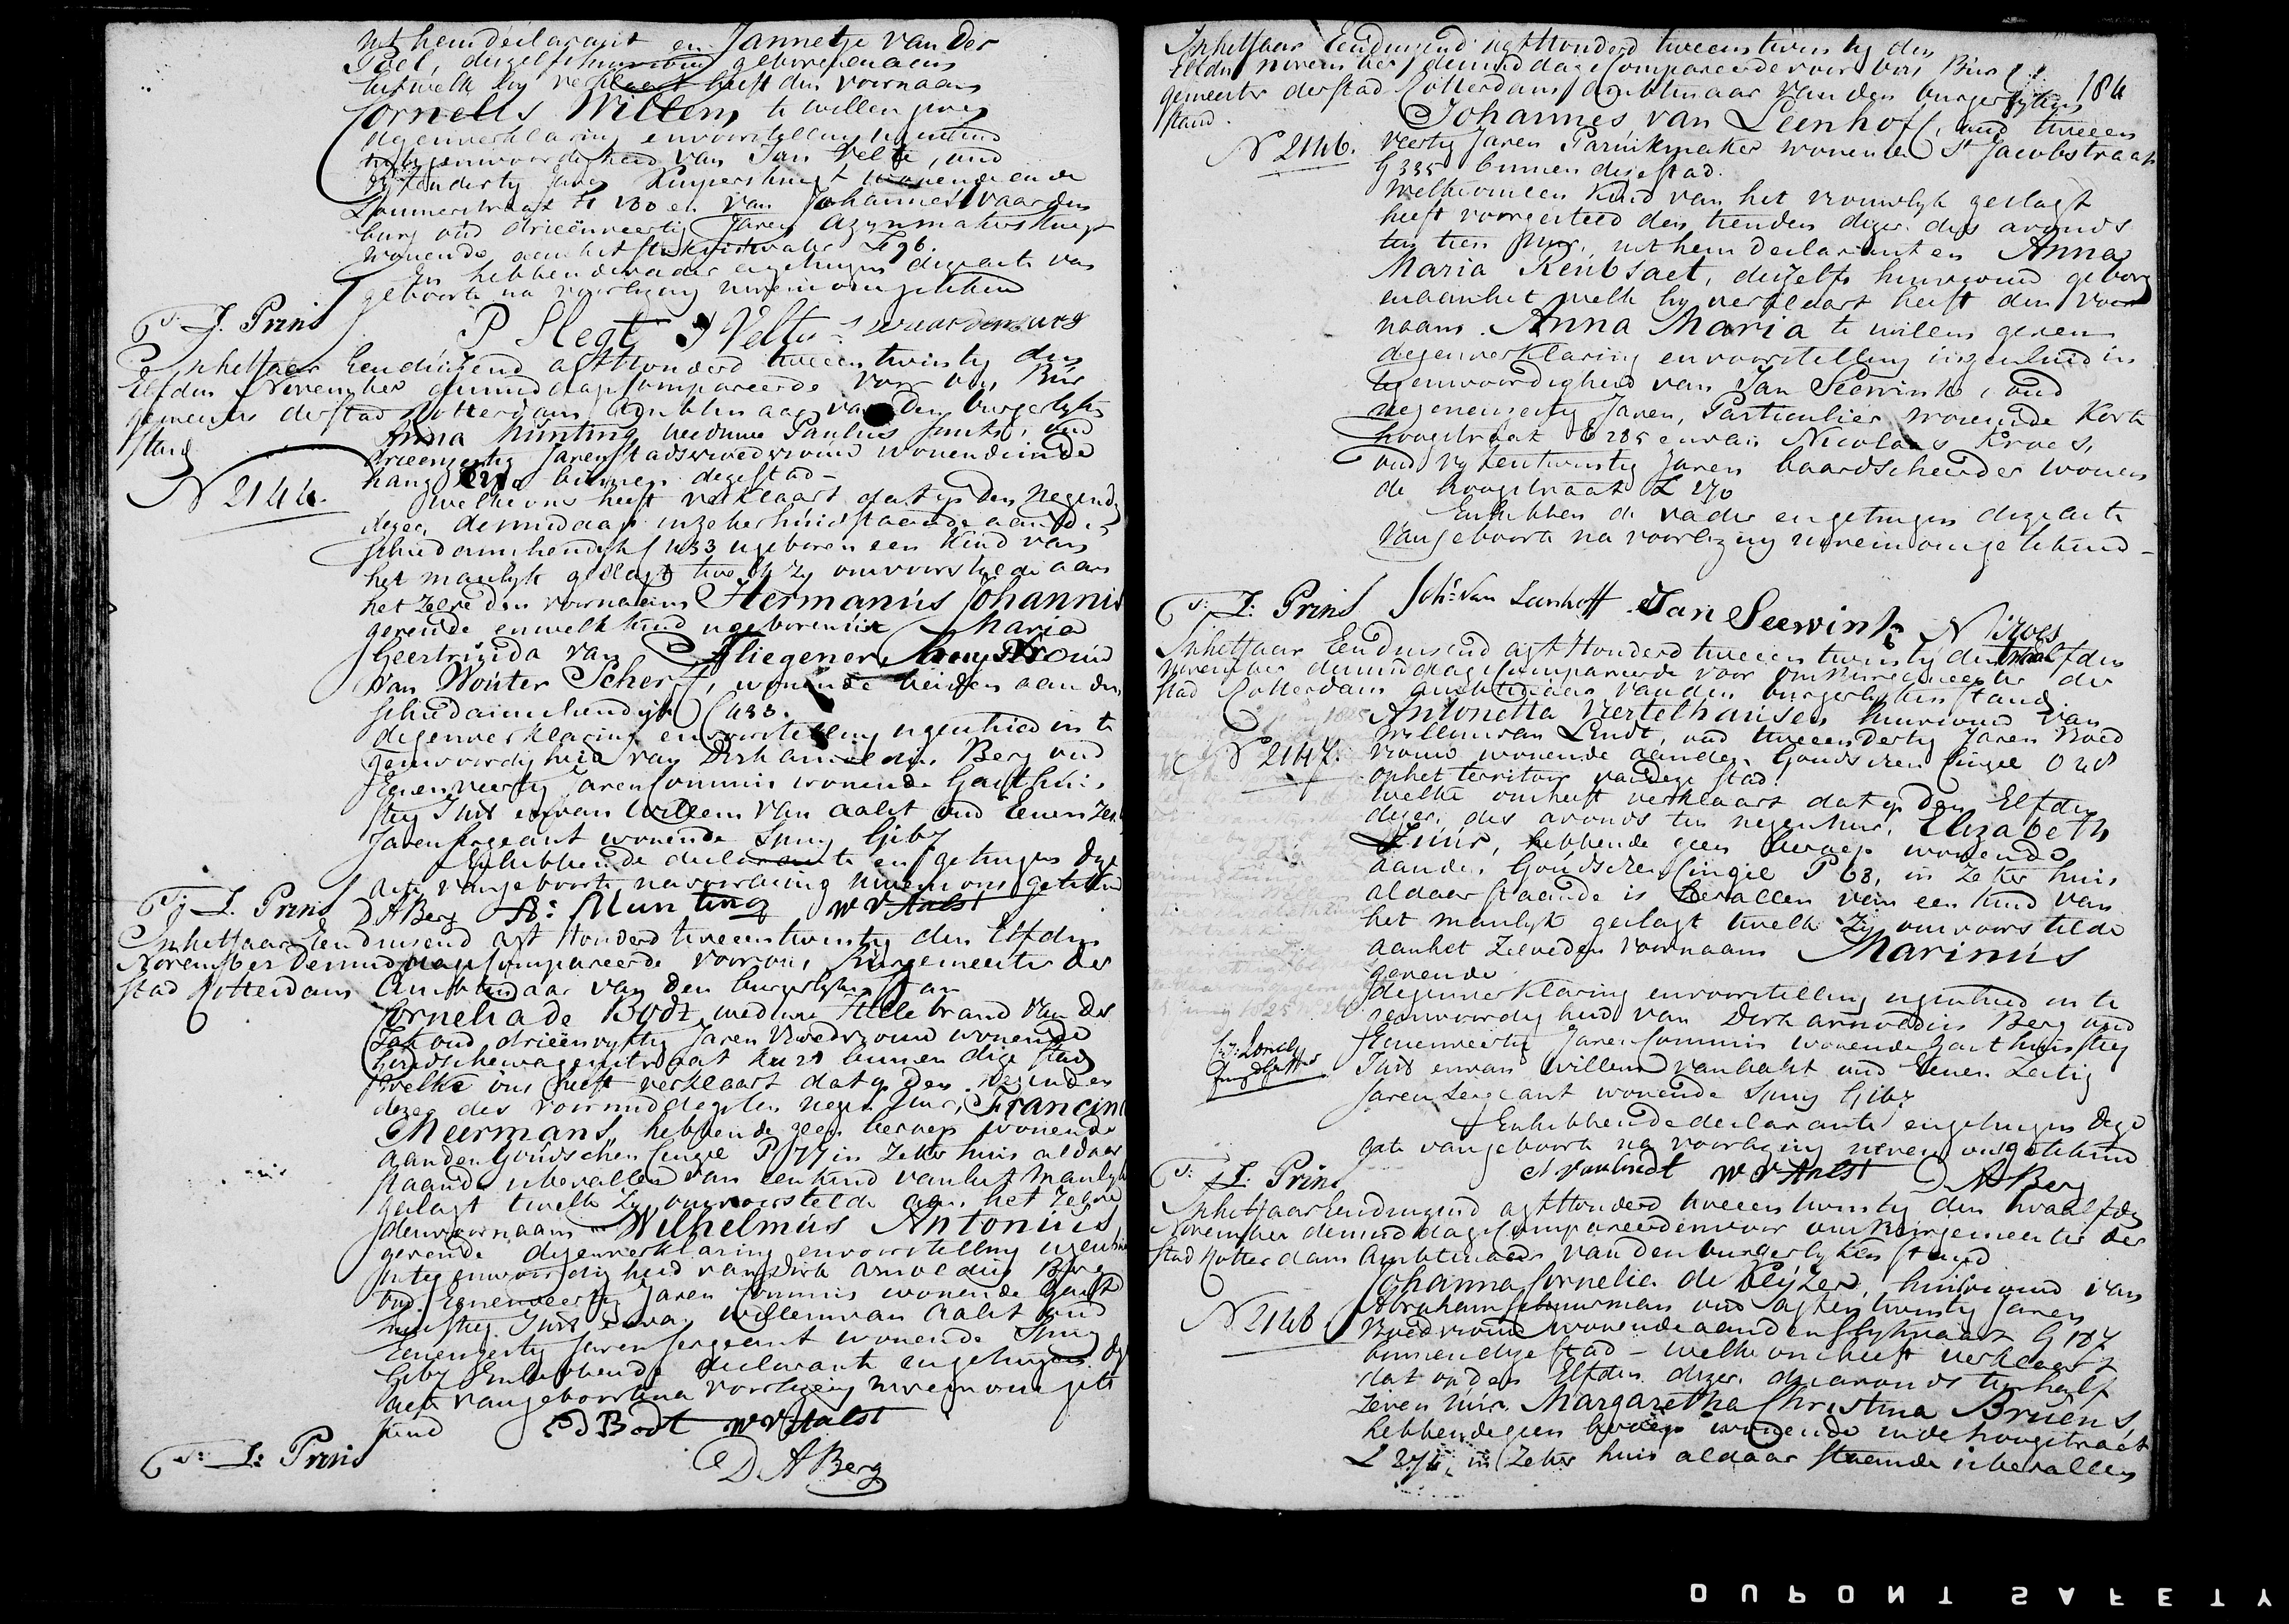 uit hem declarant en Jannetje van der
Poel, deszelfs huisvrouw geboren en aan
hetwelk hy verklaart heeft den voornaam
Cornelis Willem te willen geven
dezen verklaring en voorstelling
tegenwoordigheid van Jan Velte, oud
Jaren Kuypersknegt wonende in de
Lommerstraat en van Johannes Waarden
burg oud drieënveertig Jaren azynmakersknegt
wonende aan het
En hebben de vader en getuigen deze acte van
geboorte na voorlezing neven ons getekend
J. Prins P Slegt J Velte Waardenburg
In het Jaar Eenduizend agtHonderd tweeentwintig den
Elfden November demiddags Compareerde voor ons Bur
gemeester der stad Rotterdam Ambtenaar van den burgerlyken
stand
Anna Munting weduwe Paulus oud
drieenzestig Jaren Stadsvroedvrouw wonende in de
binnen deze stad
N 2144.
welke ons heeft verklaart dat op den negende
dezer, demiddags in zeker huis staande aan de
Schiedamschendyk 433 is geboren een Kind van
het manlyk geslagt twelk zy ons voorstelde aan
het zelve den voornaam Hermanus Johannis
gevende en welk kind is geboren uit Maria
Geertruida van Vliegener, huysvrouw
van Wouter Scherff, wonende beiden aan den
Schiedamschendyk 433.
dezen verklaring en voorstelling is geschied in te
genwoordigheid van Dirk Arnoldus Berg oud
Eenenveertig Jaren Commis wonende Gasthuis
steg en van Willem van Aalst oud Eenenzes
Jaren Sergeant wonende Spuy
En hebben de declarante en getuigen deze
acte van geboorte na voorlezing neven ons getekend
J. Prins D A Berg A: Munting W V Aalst
In het Jaar Eenduizend agt Honderd tweeentwintig den Elfden
November demiddags Compareerde voor ons Burgemeester der
stad Rotterdam Ambtenaar van den burgerlyken Stan
Cornelia de Bodt, weduwe Hillebrand van der
oud drieënvyftig Jaren Vroedvrouw wonende
Goudschewagenstraat binnen deze stad
welke ons heeft verklaart dat op den negenden
dezer des voormiddags ten negen Uur, Francina
Meermans, hebbende geen beroep wonende
aan den Goudschen Cingel P 77 in zeker huis aldaar
staande is bevallen van een kind van het Manlyk
geslagt twelk Zy ons voorstelde aan het zelve
den voornaam Wilhelmus Antonius
gevende dezen verklaring en voorstelling is geschied
in tegenwoordigheid van Dirk Arnoldus Berg
oud Eenenveertig Jaren Commis wonende Gast
huissteg en van Willem van Aalst oud
Eenenzestig Jaren Sergeant wonende Spuy
En hebben de declarante en getuigen deze
acte van geboorte na voorlezing neven ons gete
kend C D Bodt W V Aalst
J: Prins D A Berg
In het Jaar Eenduizend agtHonderd tweeentwintig den
Elfden november demiddags Compareerde voor ons Bur
gemeester der stad Rotterdam Ambtenaar van den burgerlyken
stand.
184
Johannes van Leenhoff, oud tweeen
N 2146. veertig Jaren Paruikmaker wonende St Jacobstraat
G 335 binnen deze stad.
Welke ons een Kind van het vrouwlyk geslagt
heeft voorgesteld den tienden dezer des avonds
ten tien Uur, uit hem declarant en Anna
Maria Reubsaet, deszelfs huisvrouw gebore
en aan het welk hy verklaart heeft den voor
naam Anna Maria te willen geven
dezen verklaring en voorstelling is geschied in
tegenwoordigheid van Jan Seewink, oud
negenenzestig Jaren, Particulier wonende Korte
hoogstraat 285 en van Nicolaas Kroes,
oud vyfentwintig Jaren baardscheerder wonen
de hoogstraat L 270
En hebben de vader en getuigen deze acte
van geboorte na voorlezing neven ons getekend
J: Prins Johs van Leenhoff Jan Seewink N Kroes
In het Jaar Eenduizend agtHonderd tweeentwintig den twaalfden
november demiddags Compareerde voor ons Burgemeester der
stad Rotterdam Ambtenaar van den burgerlyken stand
Antonetta Mertelhausen huisvrouw van
Willem van Lindt, oud tweeendertig Jaren Vroed
N 2147. vrouw wonende aan den Goudschen Cingel
op het territoir van deze stad.
welke ons heeft verklaart dat op den Elfden
dezer, des avonds ten negen uur, Elizabeth
Zuur, hebbende geen beroep wonende
aan den Goudschen Cingel P 68, in zeker huis
aldaar staande is bevallen van een kind van
het manlyk geslagt twelk Zy ons voorstelde
aan het Zelve den voornaam Marinus
gevende
dezen verklaring en voorstelling is geschied in te
genwoordigheid van Dirk Arnoldus Berg oud
Eenenveertig Jaren Commis wonende Gasthuissteg
en van Willem van Aalst oud Eenen Zestig
Jaren Sergeant wonende Spuy
En hebben de declarante en getuigen deze
acte van geboorte na voorlezing neven ons getekend
J: Prins W V Aalst D A Berg
In het Jaar Eenduizend agtHonderd tweeentwintig den twaalfden
November demiddags Compareerde voor ons Burgemeester der
stad Rotterdam Ambtenaar van den burgerlyken stand
Johanna Cornelia de Keyzer, huisvrouw van
Abraham Schuurman oud agtentwintig Jaren
N 2148 Vroedvrouw wonende aan den Slykvaart G 187
binnen deze stad - welke ons heeft verklaart
dat op den Elfden dezer, des avonds ten half
zeven Uur Margaretha Christina Bruens,
hebbende geen beroep wonende in de hoogstraat
L 274, in zeker huis aldaar staande is bevallen
DUPONT SAFETY